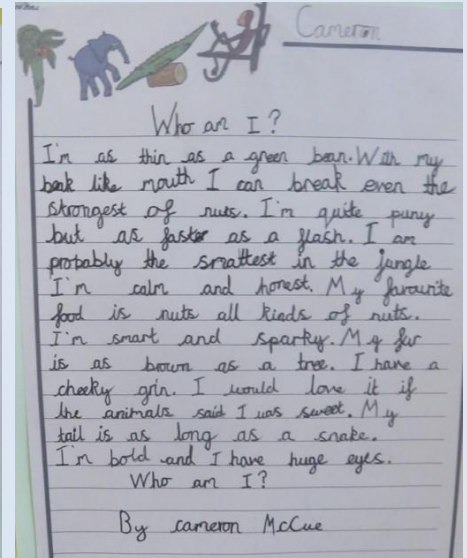 Cameron
Who am I?
I'm as thin as a green bean. With my
beak like mouth I can break even the
strongest of nuts. I'm quite puny
but as faster as a flash. I am
probably the smattest in the jungle
I'm calm and honest. My favourite
food is nuts all kinds of nuts.
I'm smart and sparky. My fur
is as brown as a tree. I have a
cheeky grin. I would love it if
the animals said I was sweet. My
tail is as long as a snake.
I'm bold and I have huge eyes.
Who am I?
By cameron McCue